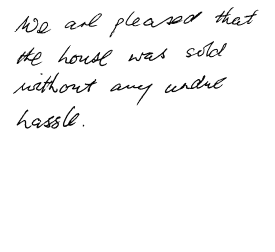 We are pleased that
the house was sold
without any undue
hassle.